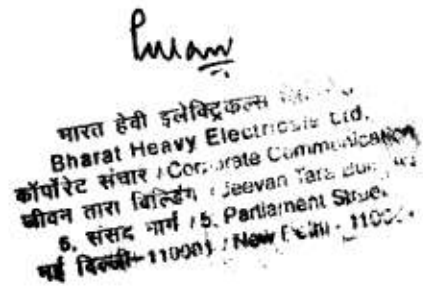 भारत हेवी इलेक्ट्रिकल्स
Bharat Heavy Electricals Ltd.
कॉर्पोरेट संचार / Corporate Communication
जीवन तारा बिल्डिंग / Jeevan Tara
5, संसद मार्ग / 5, Parliament Street
नई दिल्ली-110001 / New Delhi - 11000